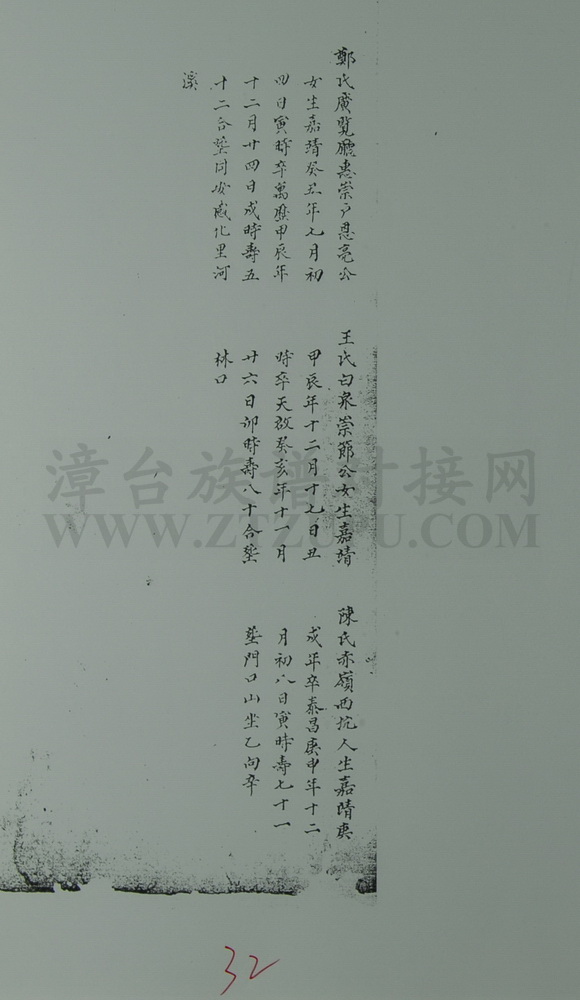 鄭氏廣覽廳惠崇户恩亮公
女生嘉靖癸丑年七月初
四日寅時卒萬曆甲辰年
十二月廿四日戌時壽五
十二合塟同安感化里河
溪
王氏白泉崇節公女生嘉靖
甲辰年十二月十七日丑
時卒天啟癸亥年十一月
廿六日卯時壽八十合塟
林口
陳氏赤嶺西坑人生嘉靖庚
戌年卒泰昌庚申年十二
月初八日寅時壽七十一
塟門口山坐乙向辛
漳台族譜对接网
WWW.ZTZUPU.COM
32